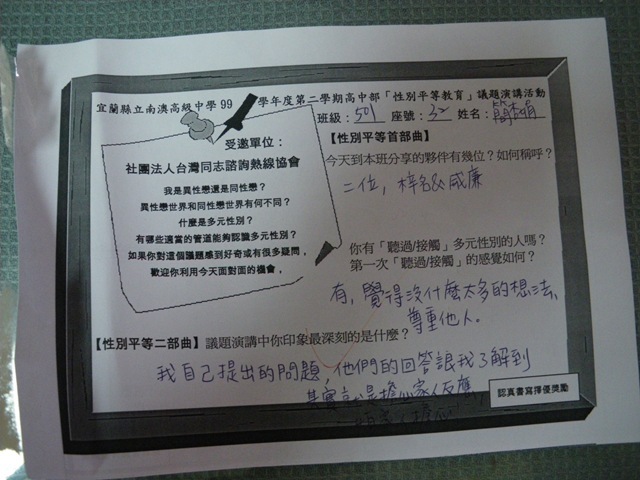 宜蘭縣立南澳高級中學 99 學年度第二學期高中部「性別平等教育」議題演講活動
班級：501 座號：32 姓名：簡
受邀單位：
社團法人台灣同志諮詢熱線協會
我是異性戀還是同性戀？
異性戀世界和同性戀世界有何不同？
什麼是多元性別？
有哪些適當的管道能夠認識多元性別？
如果你對這個議題感到好奇或有很多疑問，
歡迎你利用今天面對面的機會，
【性別平等首部曲】
今天到本班分享的夥伴有幾位？如何稱呼？
二位，梓名&威廉
你有「聽過/接觸」多元性別的人嗎？
第一次「聽過/接觸」的感覺如何？
有，覺得沒什麼太多的想法，
尊重他人。
【性別平等二部曲】議題演講中你印象最深刻的是什麼？
我自己提出的問題，他們的回答讓我了解到
其實就是擔心家人反應
認真書寫擇優獎勵